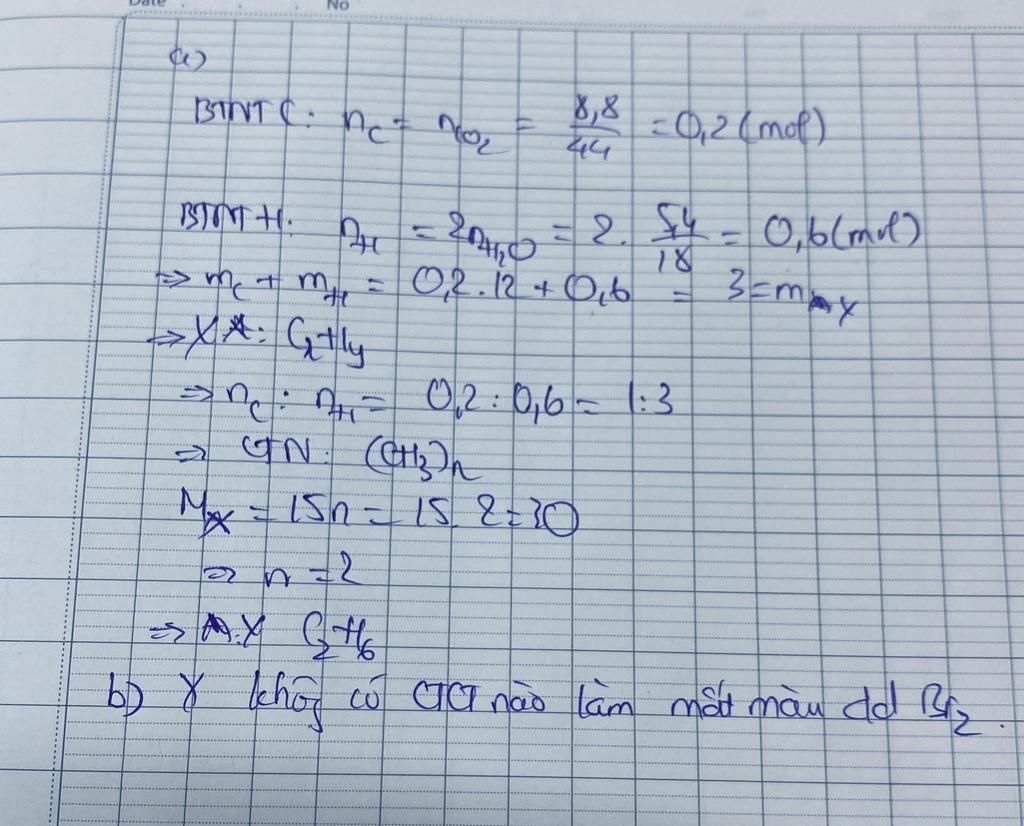 Date No
a)
BTNT C: n_C = n_CO₂ = 8,8/44 = 0,2 (mol)
BTNT H: n_H = 2n_H₂O = 2. 5,4/18 = 0,6 (mol)
⇒ m_C + m_H = 0,2.12 + 0,6 = 3 = m_X
⇒ X: CxHy
⇒ n_C : n_H = 0,2 : 0,6 = 1:3
⇒ CTN: (CH₃)n
M_X = 15n = 15.2 = 30
⇒ n = 2
⇒ X C₂H₆
b) X không có CTCT nào làm mất màu dd Br₂.